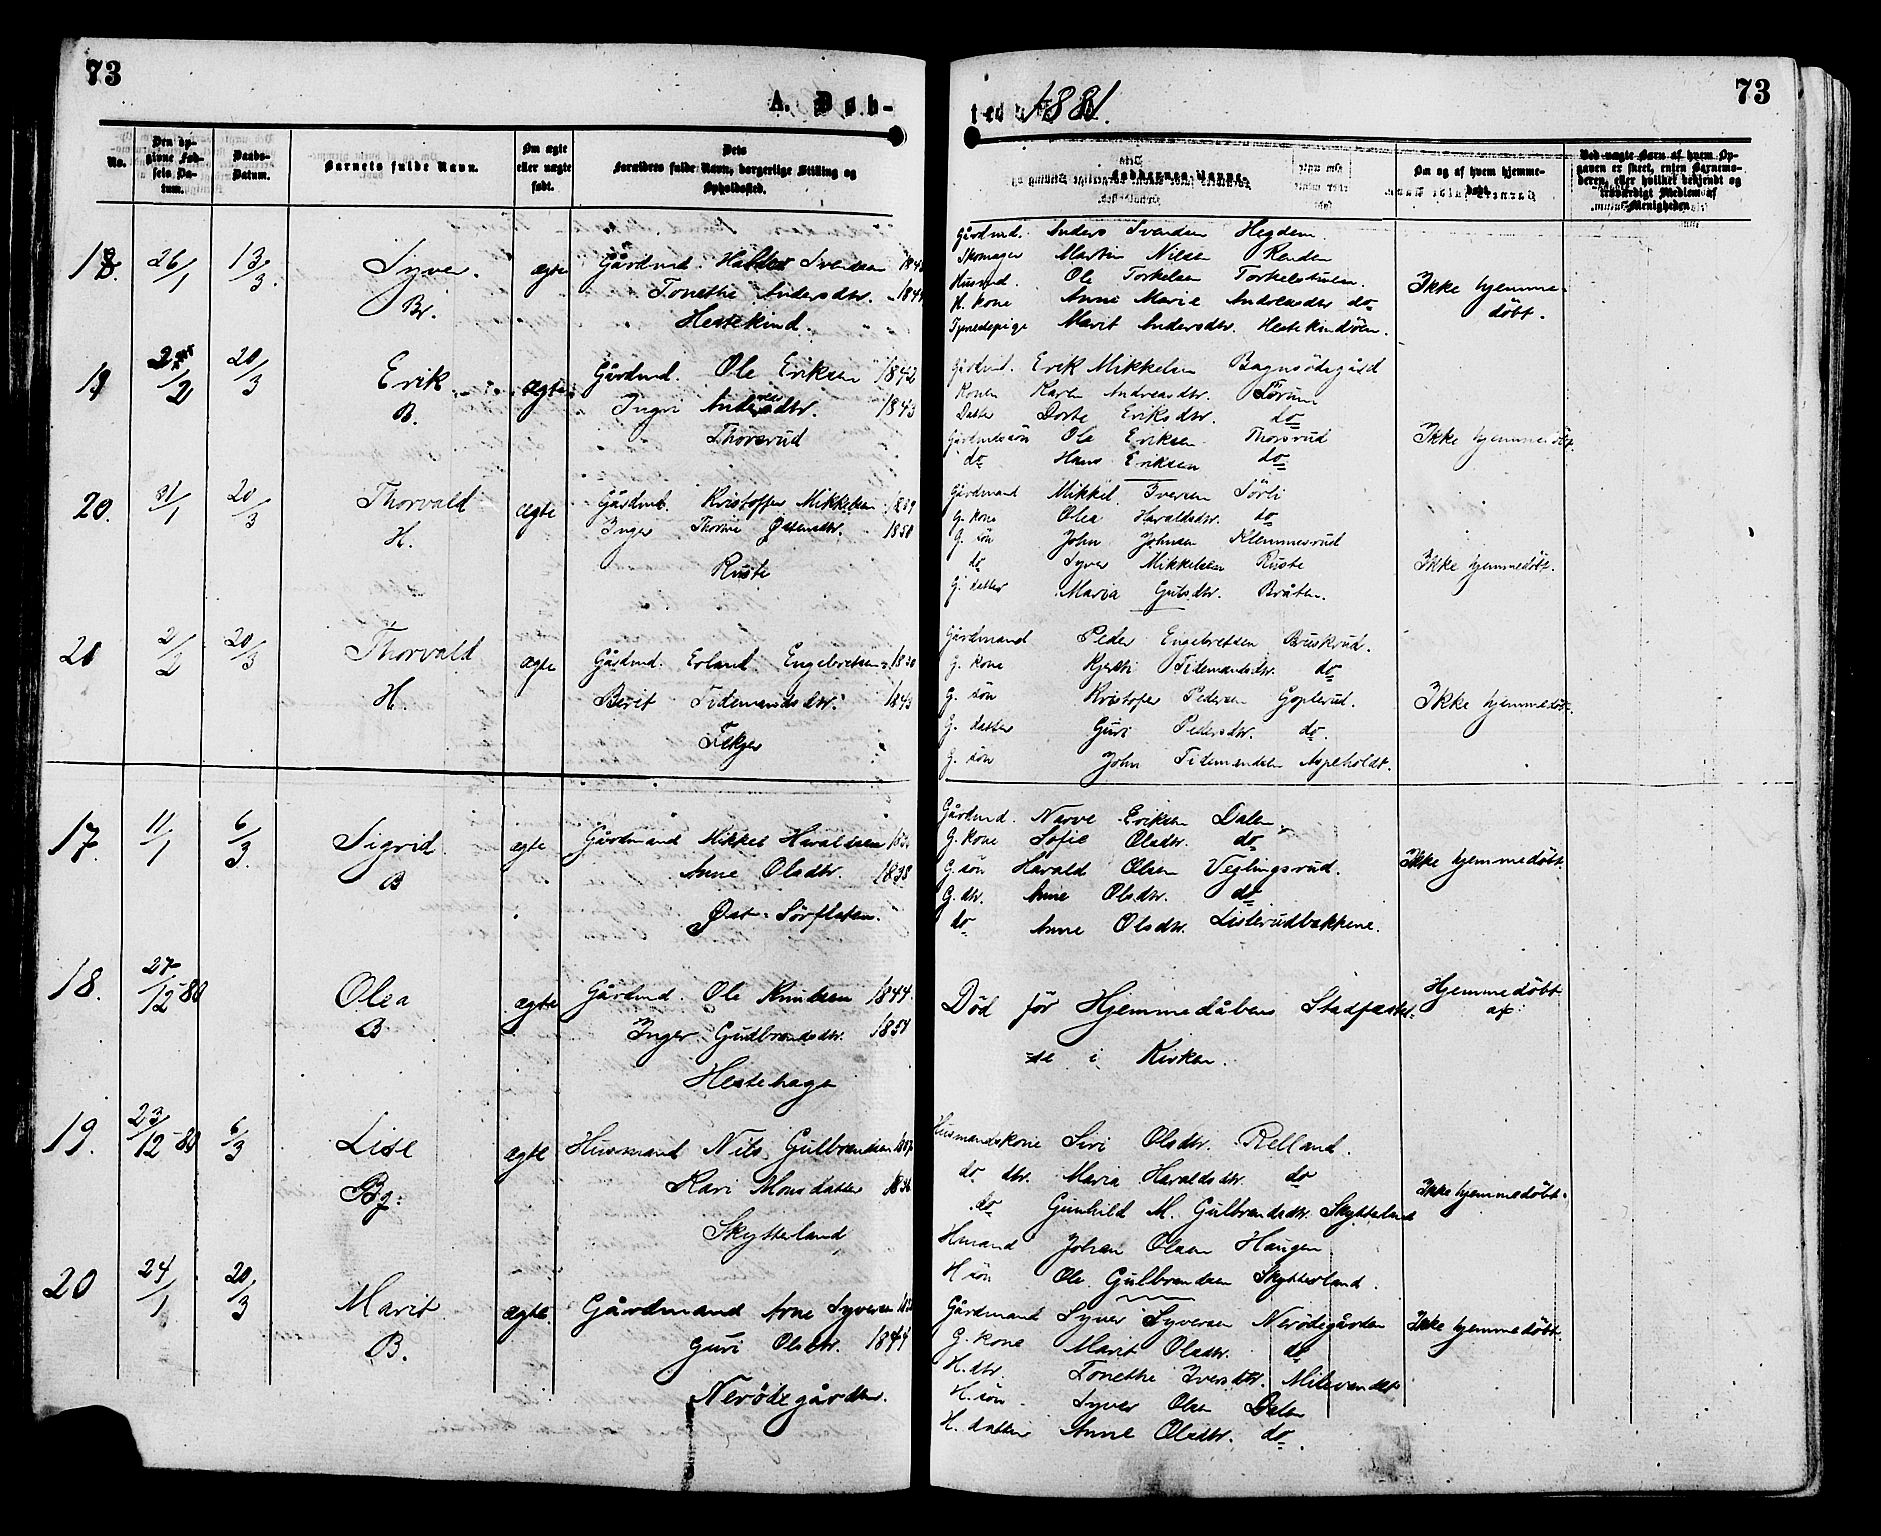 73
73
A. Døb-
1881.
No.
Den opgivne Fødsels Datum.
Daabs-Datum.
Barnets fulde Navn.
Om ægte eller uægte født.
Dets Forældres fulde Navn, borgerlige Stilling og Opholdssted.
Faddernes Navne.
Om og af hvem hjemmedøbt.
Ved uægte Barn af hvem Opgaven er skeet, enten Barnemoderen, eller hvilket bekjendt og troværdigt Medlem af Menigheden.
18. 26/1 13/3 Syver. ægte Gårdmd. Svendsen
Br. Tonethe Andersdtr.
Hestekind.
Gårdmd. Anders Svendsen Hegdem.
Skomager Martin Nilsen Renden
Husmd. Ole Torkelsen Torkelstuen.
H. kone Anne Marie Andreasdtr do
Tjenestepige Marit Andersdtr. Hestekindøen.
Ikke hjemme-
døbt.
19 /2 20/3 Erik ægte Gårdmd. Ole Eriksen 1842
B. Ingri dtr. 1843
Thorsrud
Gårdmd. Erik Mikkelsen Bagnsødegård
Konen Karen Andreasdtr. Sörum
Datter Dorte Eriksdtr. do
Gårdmdssön Ole Eriksen Thorsrud
do Hans Eriksen do
Ikke hjemmedøbt.
20. 31/1 20/3 Thorvald ægte Gårdmd. Kristoffer Mikkelsen
H. Inger Thorine Østensdtr. 1850
Ruste
Gårdmand Mikkel Iversen Sörli
G. kone Olea Haraldsdtr. do
G. sön John Johnsen Klemmesrud
do Syver Mikkelsen Ruste
G. datter Maria Gutsdtr. Bråten.
Ikke hjemmedøbt.
2/2 20/3 Thorvald ægte Gårdmd. Erland Engebretsen
H. Berit Tidemandsdtr. 1843
Gårdmand Peder Engebretsen Bruskrud.
G. kone Kjersti Tidemandsdtr. do
G. sön Kristofer Pedersen Goplerud.
G. datter Guri Pedersdtr. do.
G. sön John Tidemandsen Aspeholdt.
Ikke hjemmedøbt.
17. 11/1 6/3 Sigrid. ægte Gårdmand Mikkel Haraldsen
B Anne Olsdtr. 1838
Øst. Sörflaten.
Gårdmd. Narve Eriksen Dalen
G. kone Sofie Olsdtr. do
G. sön Harald Olsen Veglingsrud.
G. dtr. Anne Olsdtr. do
do Anne Olsdtr. Listerudbakkene.
Ikke hjemmedøbt
18. 27/12-80 Olea ægte Gårdmd. Ole Knudsen 1844.
B Inger Gudbrandsdtr.
Hestehagen
Död för Hjemmedåbens Stadfæstel-
se i Kirken.
Hjemmedøbt
af
19. 23/12-80 6/3 Lise ægte Husmand Nils Gulbrandsen
Bg: Kari Monsdatter
Skytterland
Husmandskone Siri Olsdtr. Relland.
do dtr. Maria Haraldsdtr. do
do Gunhild M. Gulbrandsdtr. Skytterland
Hmand Johan Olsen Haugen
H sön Ole Gulbrandsen Skytterland.
Ikke hjemmedøbt.
20 24/1 20/3 Marit ægte. Gårdmand Arne Syversen
B. Guri Olsdtr. 1844
Nerödegården.
Gårdmand Syver Syversen Nerödegården
G. kone Marit Olsdtr. do
H. dtr. Tonethe Iversdtr. Militvandet
H. sön Syver Olsen Dalen
H. datter Anne Olsdtr. do.
Ikke hjemmedøbt.